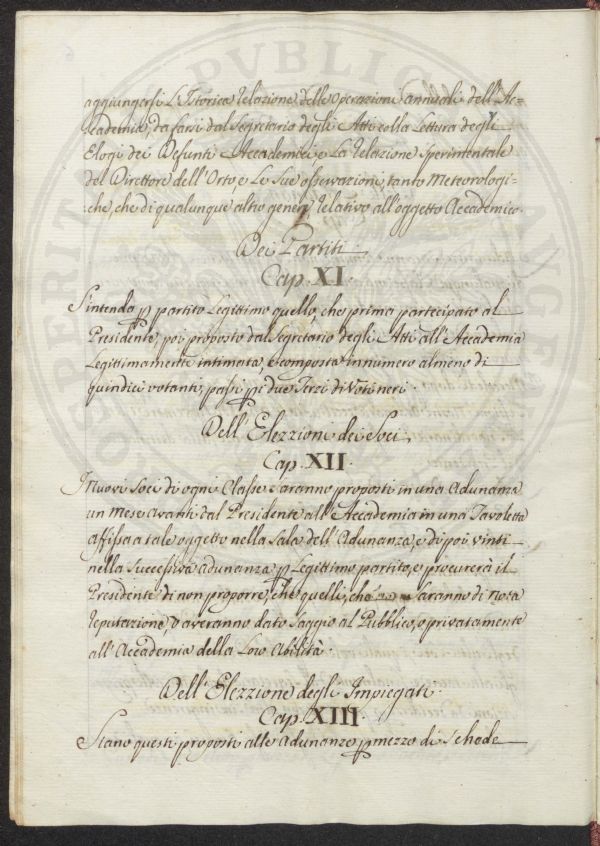 aggiungersi L'Istorica Relazione delle Operazioni annuali dell'Ac=
=cademia, da farsi dal Segretario degli Atti colla Lettura degli
Elogi dei Defunti Accademici, e La Relazione Sperimentale
del Direttore dell'Orto, e Le Sue osservazioni, tanto Meteorologi=
=che, che di qualunque altro genere Relativo all'oggetto Accademico.
Dei Partiti
Cap. XI.
S'intenda p partito Legittimo quello, che prima partecipato al
Presidente, poi proposto dal Segretario degli Atti all'Accademia
Legittimamente intimata, e composta in numero almeno di
quindici votanti, passi pi due Terzi di Voti neri.
Dell'Elezzioni dei Soci
Cap. XII.
I nuovi Soci di ogni Classe saranno proposti in una Adunanza
un Mese avanti dal Presidente all'Accademia in una Tavoletta
affissa a tale oggetto nella Sala dell'Adunanza, e di poi vinti
nella Successiva adunanza p Legittimo partito, e procurerà il
Presidente di non proporre, che quelli, che Saranno di nota
Reputazione, o averanno dato Saggio al Pubblico, o privatamente
all'Accademia della Loro Abilità.
Dell'Elezzione degli Impiegati.
Cap. XIII.
Siano questi proposti alle Adunanze p mezzo di Schede
PROSPERITATI PUBLICAE AUGENDAE